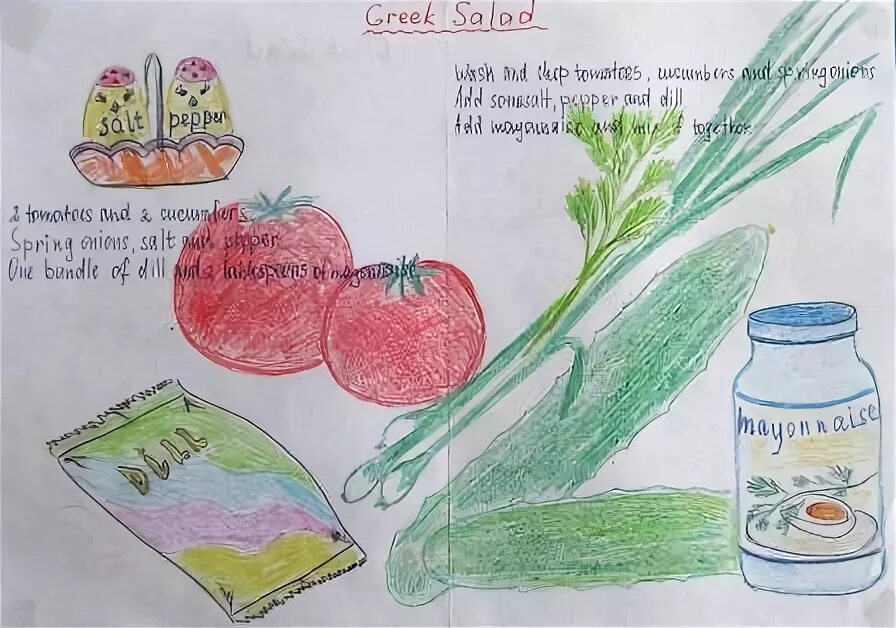 Greek Salad
Wash and chop tomatoes, cucumbers and spring onions
Add somesalt, pepper and dill
Add mayonnaise and mix it together
salt pepper
2 tomatoes and 2 cucumbers
Spring onions, salt and pepper
One bundle of dill and of mayonnaise
mayonnaise
Dill